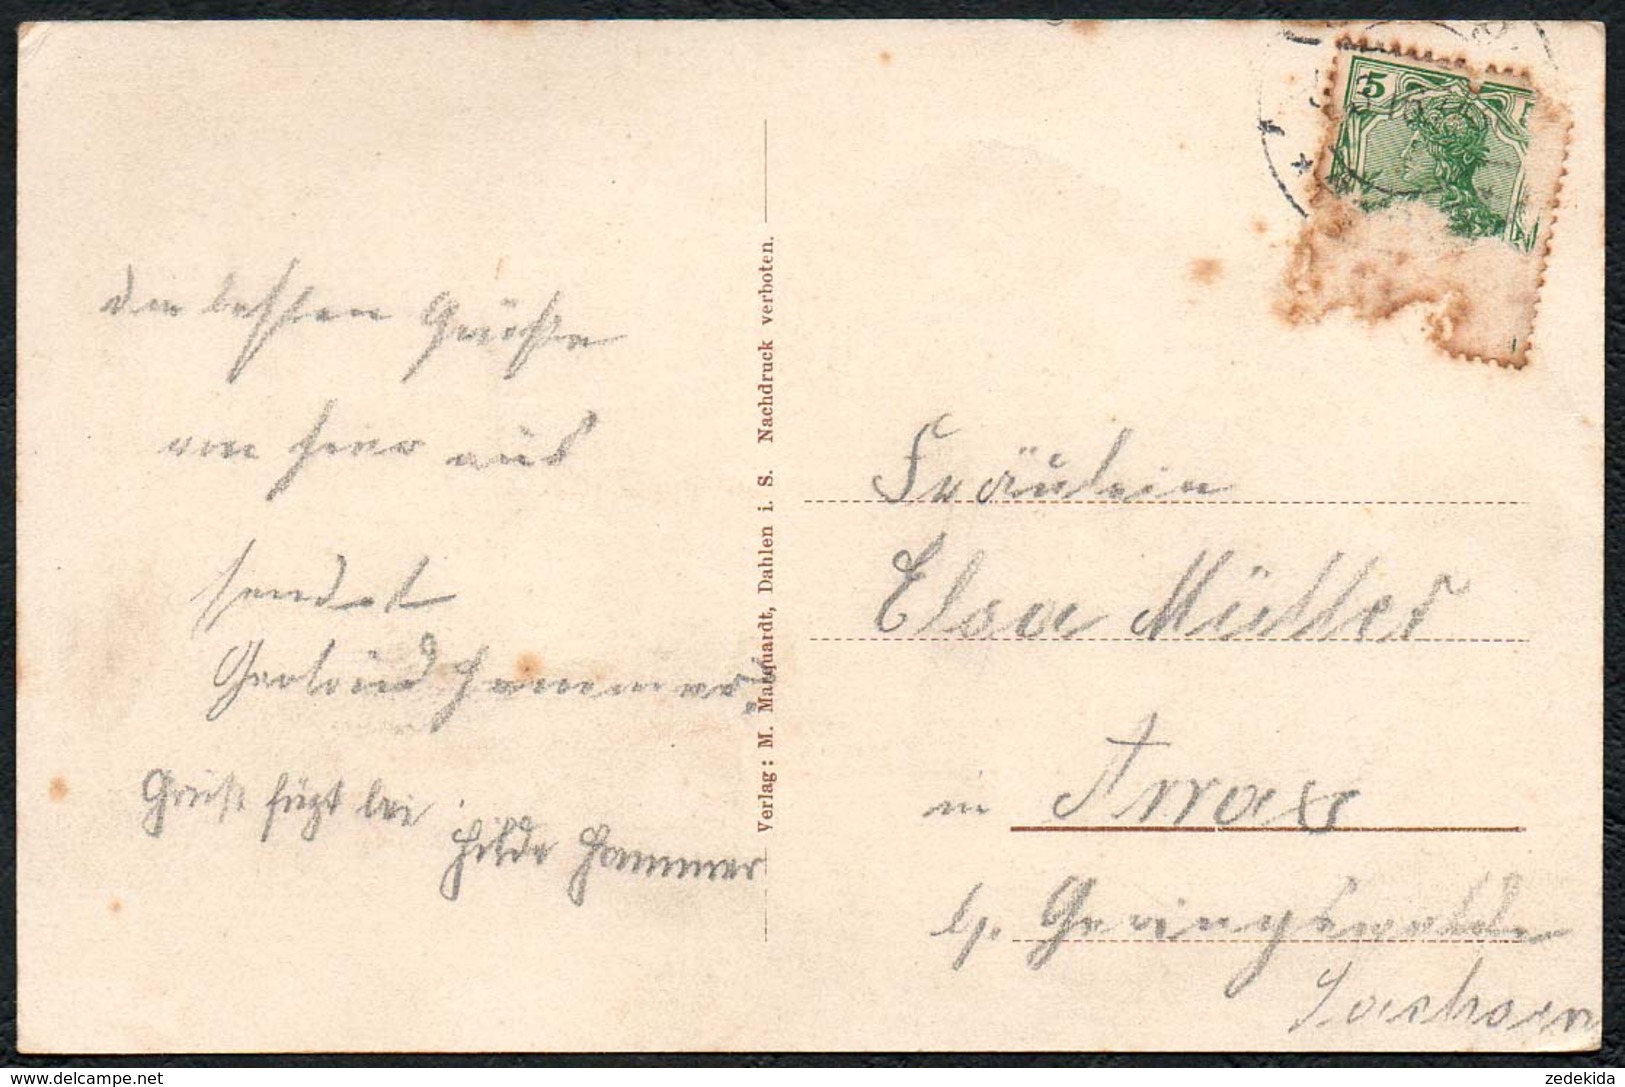 die besten Grüße
von hier aus
sendet
Gertrud Hammer.
Gruß fügt bei
Hilde Hammer
Verlag: M. Marquardt, Dahlen i. S. Nachdruck verboten.
5
Fräulein
Elsa Müller
in Arras
b/. Geringswalde
Sachsen
zedekida